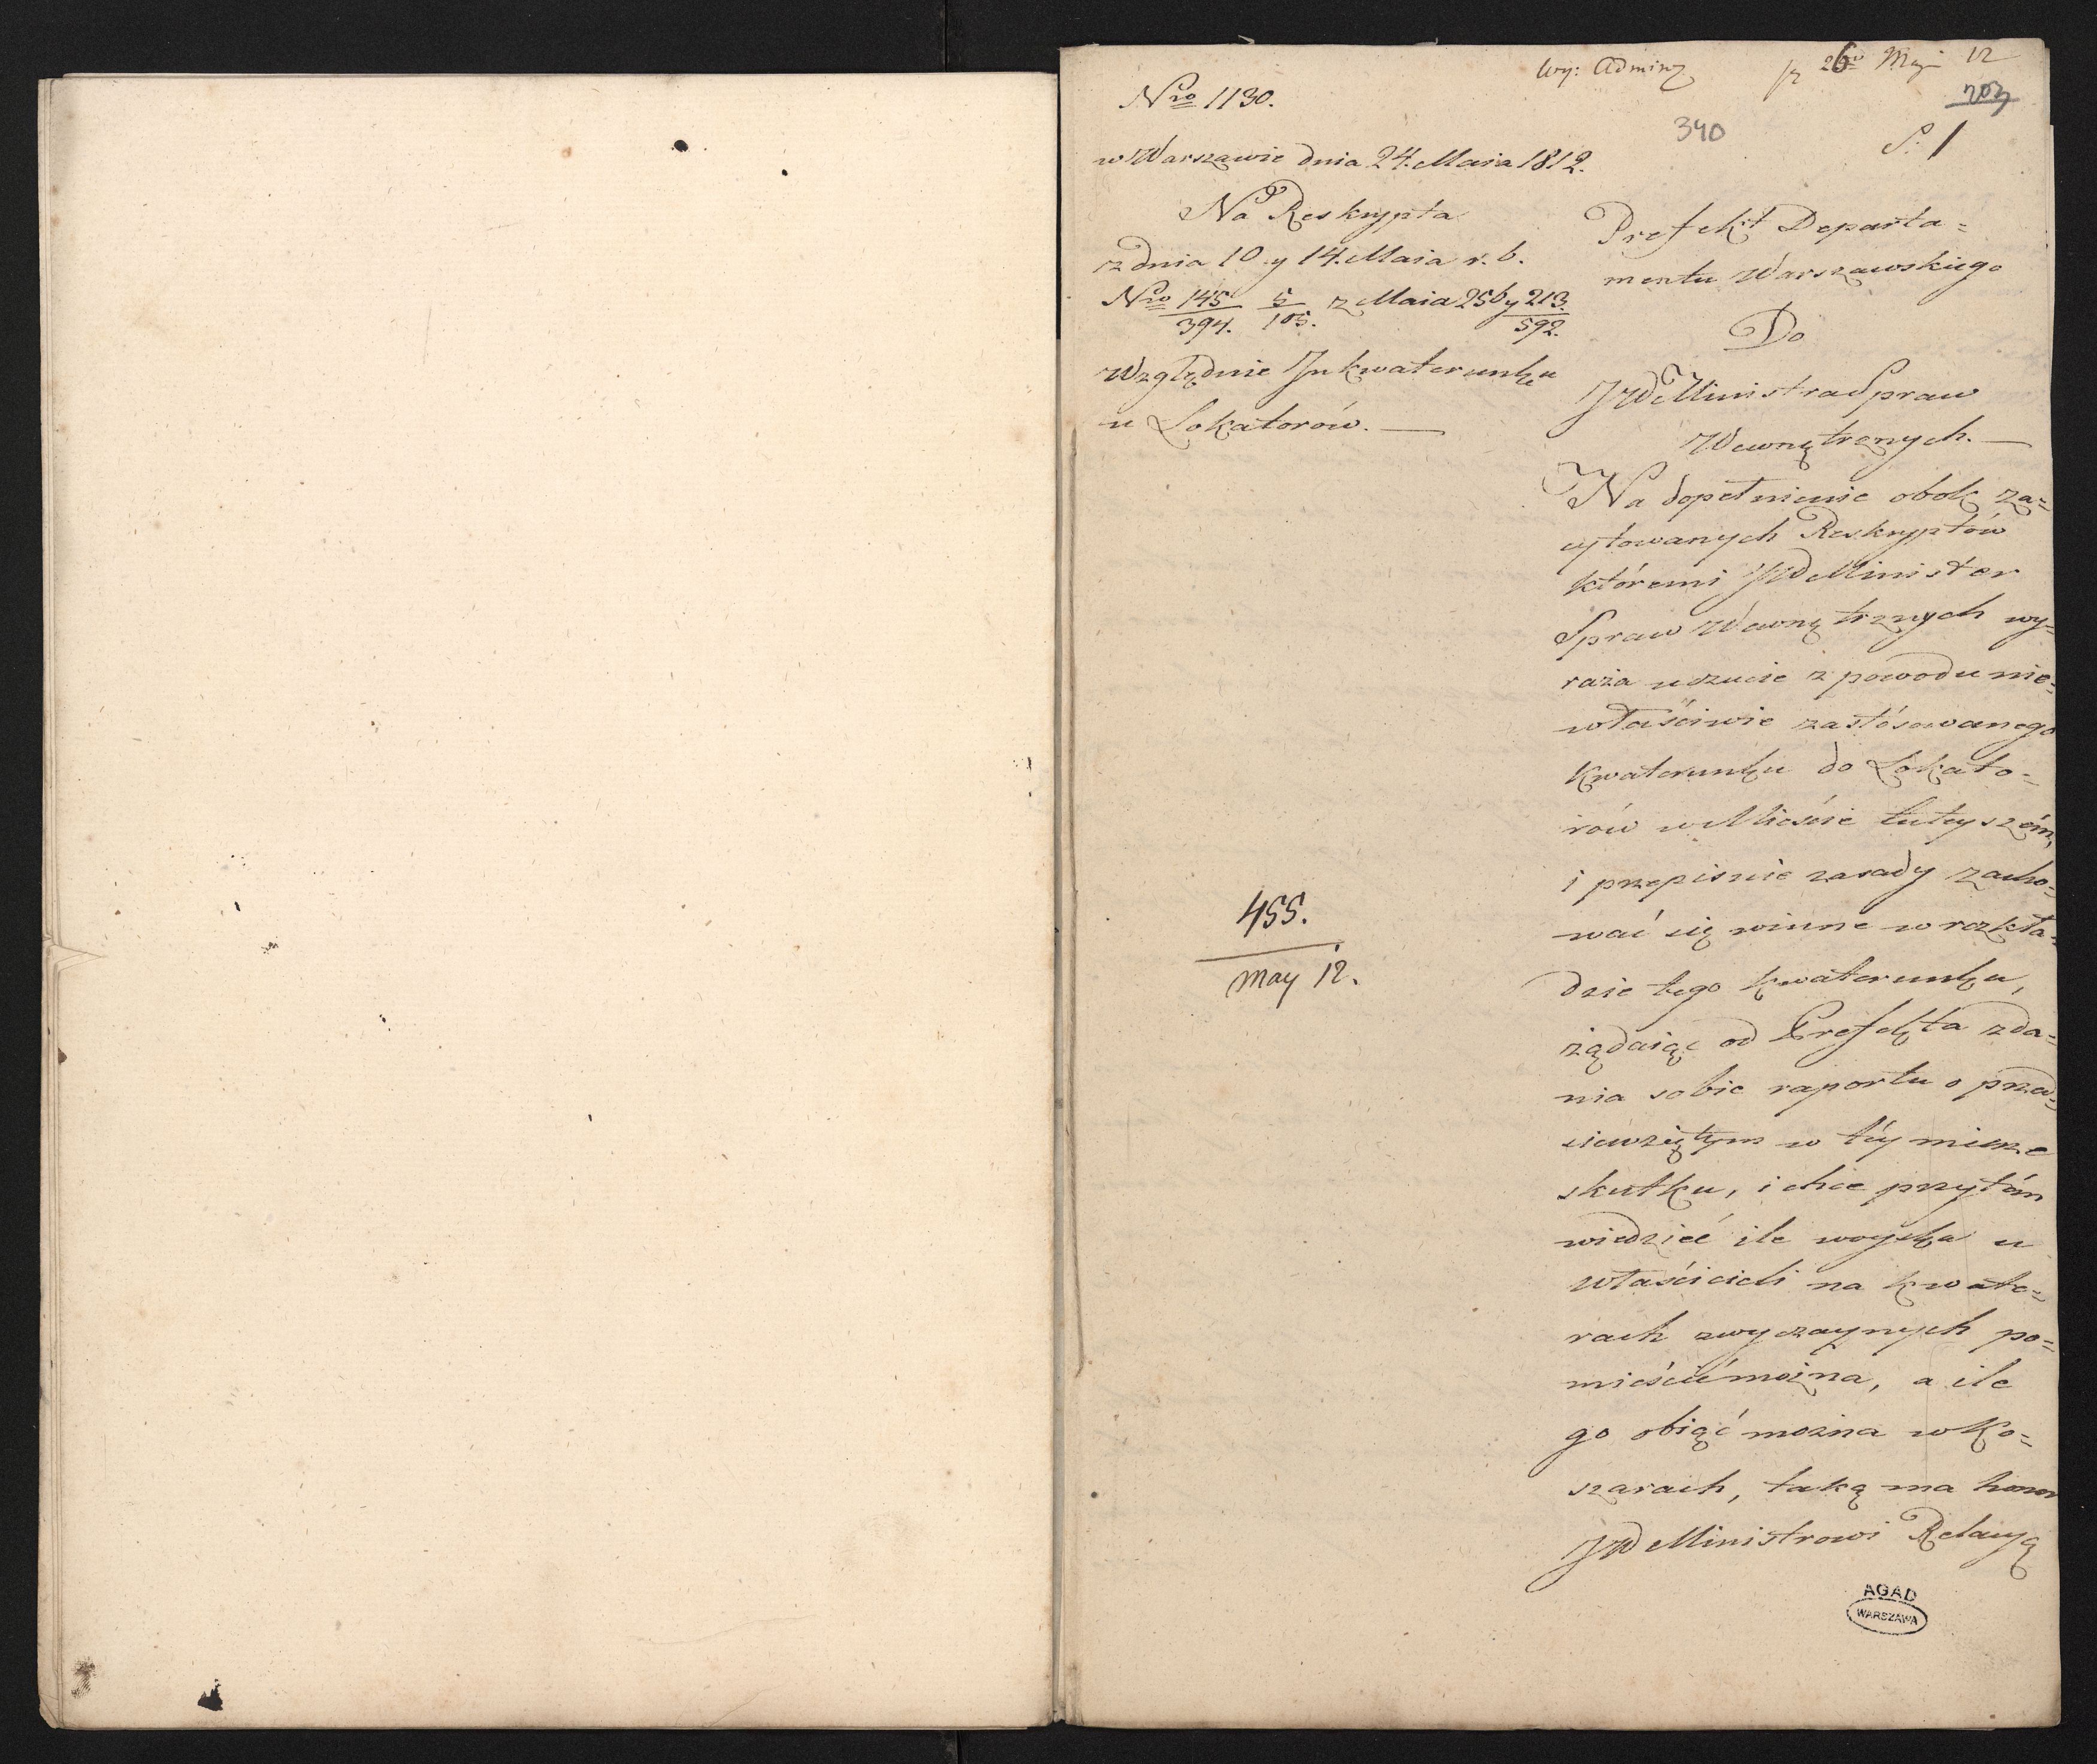 Wy: Admin
26 May 12
Nro 1130.
203
340
S. 1
w Warszawie dnia 24. Maia 1812.
Na Reskrypta
z dnia 10. y 14. Maia r. b.
Nro 145/394. 5/105. z Maia 256 y 213./592.
Względnie Jnkwaterunku
u Lokatorów. —
455.
May 12.
Prefekt Departa=
mentu Warszawskiego
Do
JW Ministra Spraw
Wewnętrznych. —
Na dopełnienie obok za=
cytowanych Reskryptów
któremi JW Minister
Spraw Wewnętrznych wy=
raża uczucie z powodu nie=
właściwie zastósowanego
kwaterunku do Lokato=
rów w Mieście tuteyszém,
i przepisuie zasady zacho=
wać się winne w rozkła=
dzie tego kwaterunku,
żądaiąc od Prefekta zda=
nia sobie raportu o przed=
siewziętym w téy mierze
skutku, i chce przytém
wiedzieć ile woyska u
właścicieli na kwate=
rach zwyczaynych po=
mieścić można, a ile
go obiąć można w Ko=
szarach, taką ma honor
JW Ministrowi Relacyą
AGAD
WARSZAWA